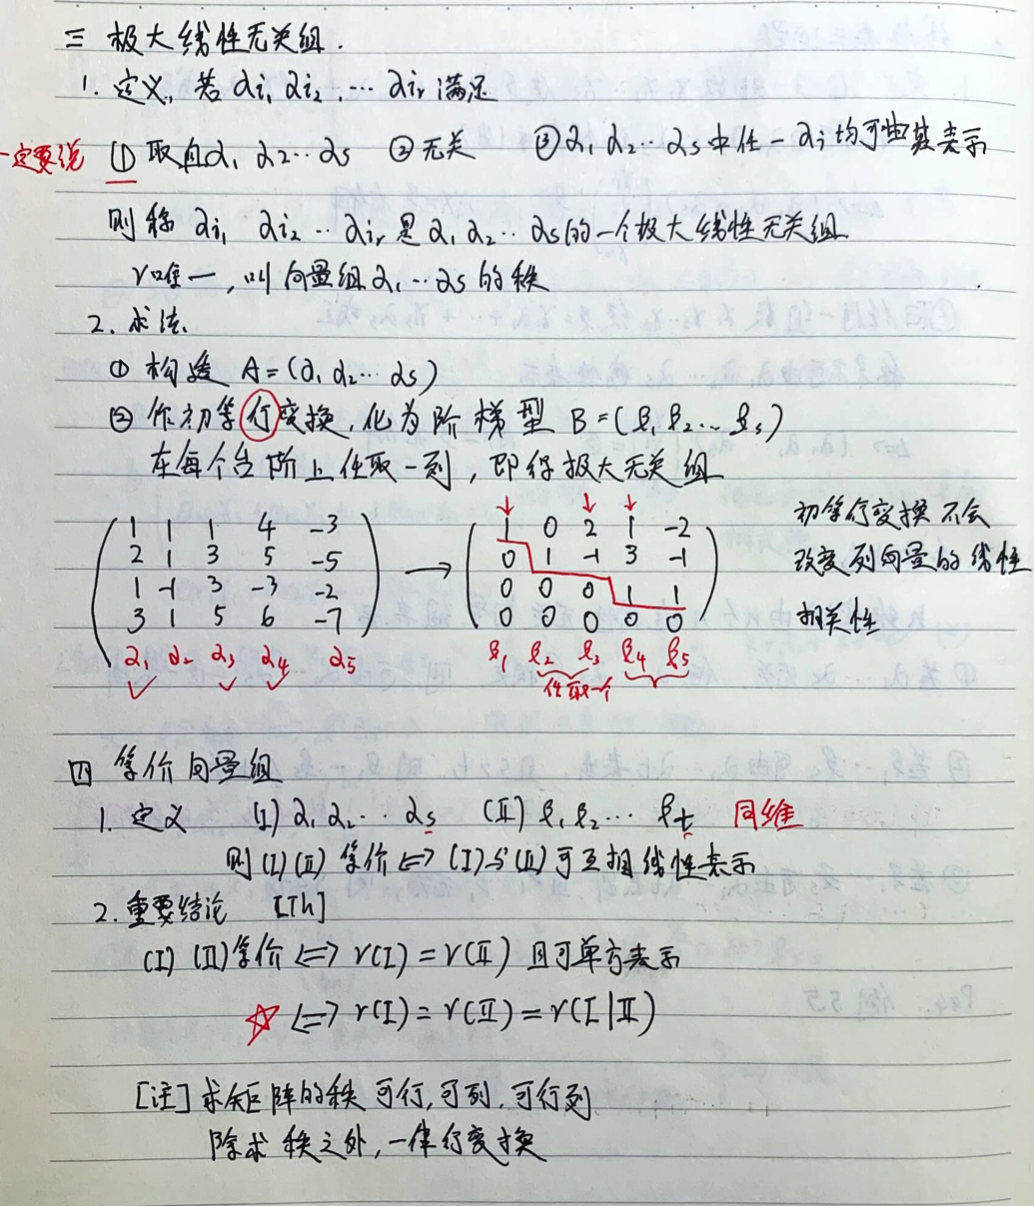 三 极大线性无关组.
1. 定义, 若 αi₁ αi₂ … αiᵣ 满足
一定要说 ① 取自α₁ α₂…αs ② 无关 ③ α₁ α₂…αs中任一αi均可由其表示
则称 αi₁ αi₂ … αiᵣ 是 α₁ α₂ … αs的一个极大线性无关组
r唯一, 叫向量组α₁…αs的秩
2. 求法
① 构造 A=(α₁ α₂… αs)
② 作初等行变换, 化为阶梯型 B=(β₁β₂…βs)
在每个台阶上任取一列, 即得极大无关组
1 1 1 4 -3 → 1 0 2 1 -2 初等行变换不会
2 1 3 5 -5 0 1 -1 3 -1 改变列向量的线性
1 -1 3 -3 -2 0 0 0 1 1 相关性
3 1 5 6 -7 0 0 0 0 0
α₁ α₂ α₃ α₄ α₅ β₁ β₂ β₃ β₄ β₅
任取一个
四 等价向量组
1. 定义 (I) α₁ α₂ … αs (II) β₁ β₂ … βt 同维
则(I)(II) 等价 ⇔ (I)与(II)可互相线性表示
2. 重要结论 [Th]
(I) (II)等价 ⇔ r(I) = r(II) 且可单方表示
☆ ⇔ r(I) = r(II) = r(I|II)
[注] 求矩阵的秩 可行, 可列, 可行列
除求秩之外, 一律行变换